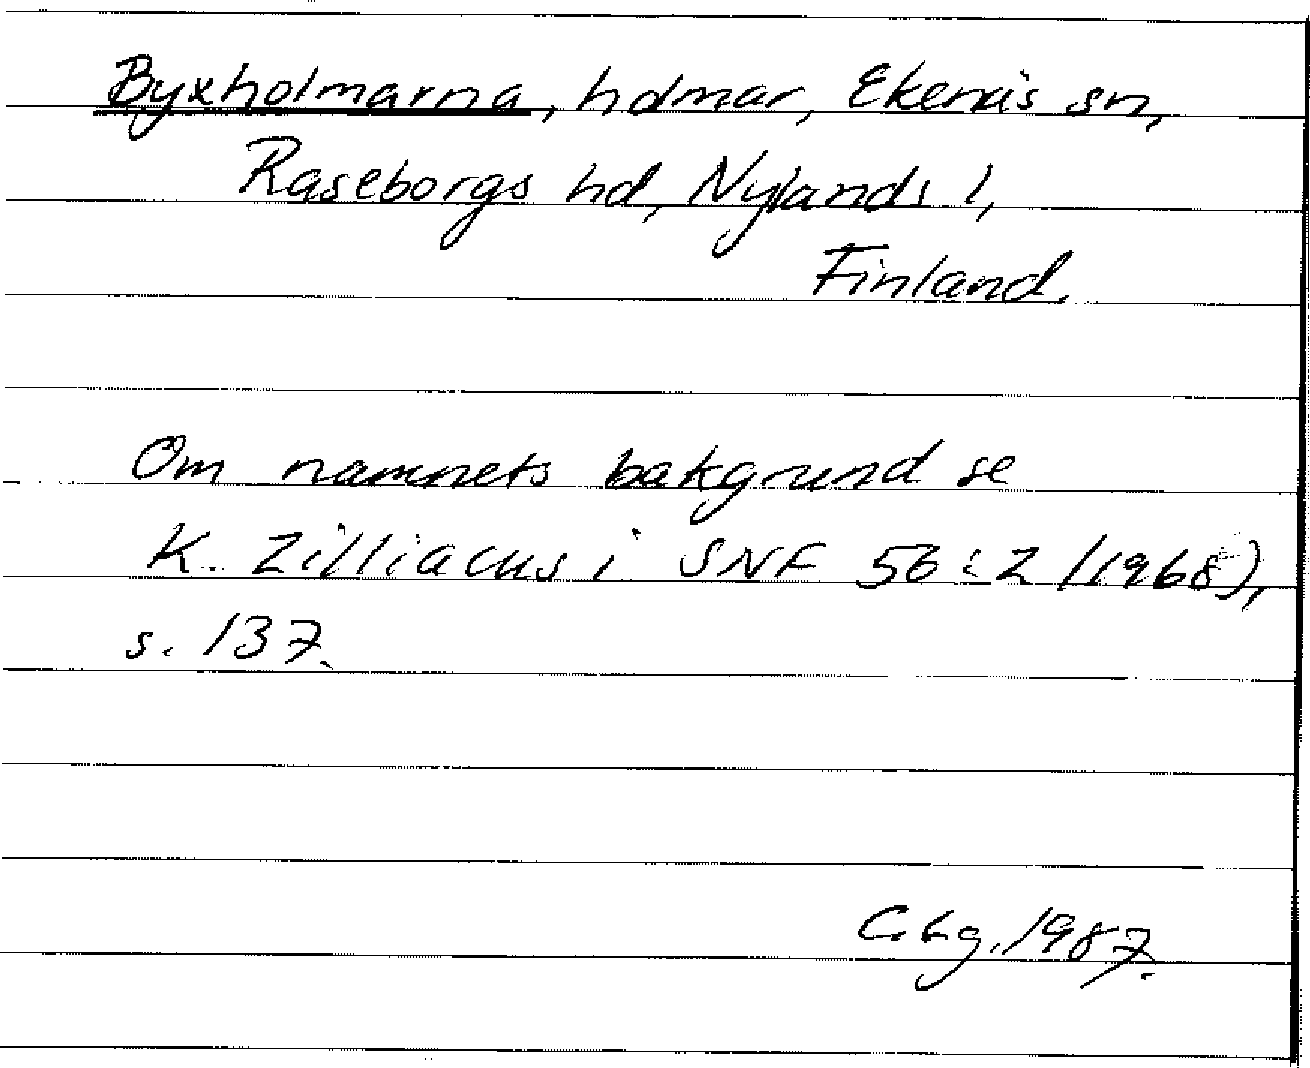 Byxholmarna, holmar, Ekenäs sn,
Raseborgs hd, Nylands l,
Finland.
Om namnets bakgrund se
K. Zilliacus i SNF 56:2 (1968),
s. 137.
C.bg. 1987.